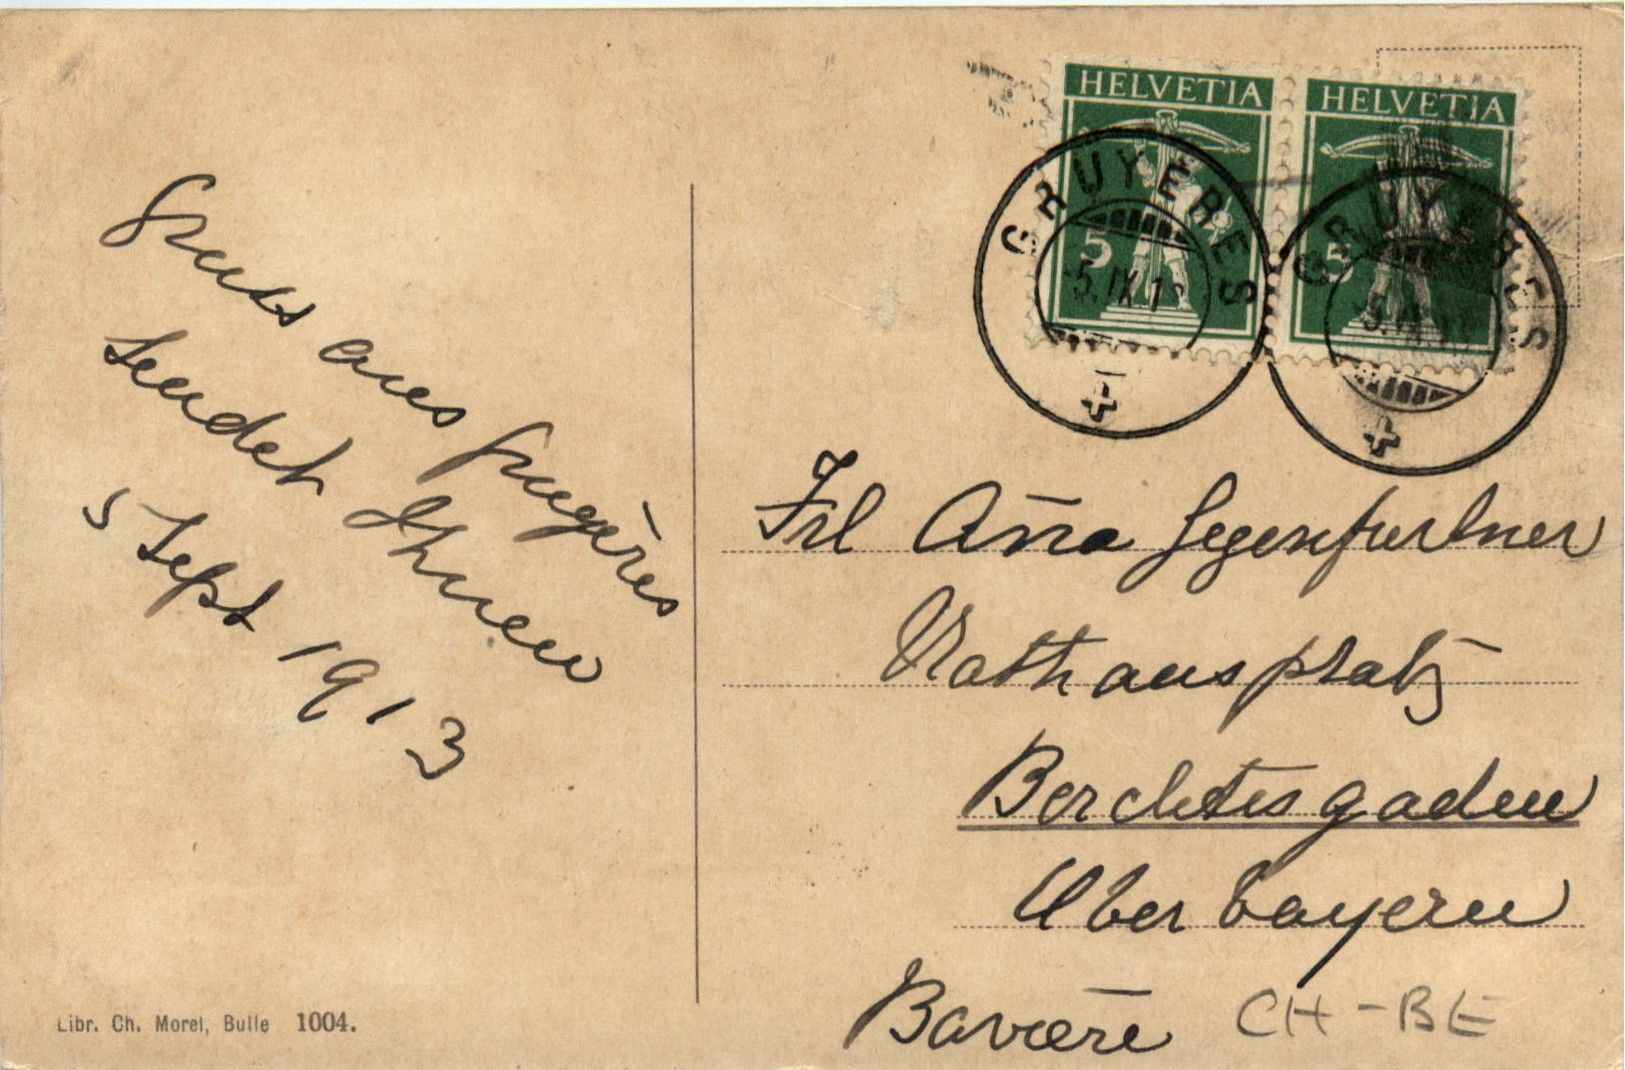 Gruss aus Gruyères
sendet Ihnen
5 Sept 1913
Libr. Ch. Morel, Bulle 1004.
HELVETIA HELVETIA
5 5
GRUYÈRES GRUYÈRES
5. IX. 1
Frl Aña Gegenfurtner
Rathausplatz
Berchtesgaden
Oberbayern
Bavière CH-BE